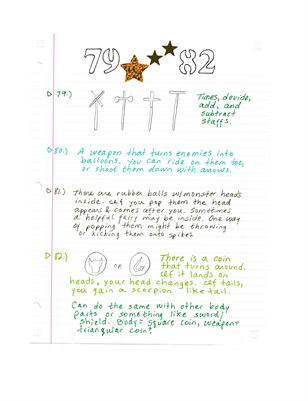 79 82
▷ 79.)
Times, devide,
add, and
subtract
staffs.
80.) A weapon that turns enemies into
balloons. you can ride on them too,
or shoot them down with arrows.
▷ 81.) There are rubber balls w/monster heads
inside. If you pop them the head
appears & comes after you. Sometimes
a helpful fairy may be inside. One way
of popping them might be throwing
or kicking them onto spikes.
▷ 82.)
OR
There is a coin
that turns around.
If it lands on
heads, your head changes. If tails,
you gain a scorpion-like tail.
Can do the same with other body
parts or something like sword/
shield. Body= square coin, weapon=
triangular coin?